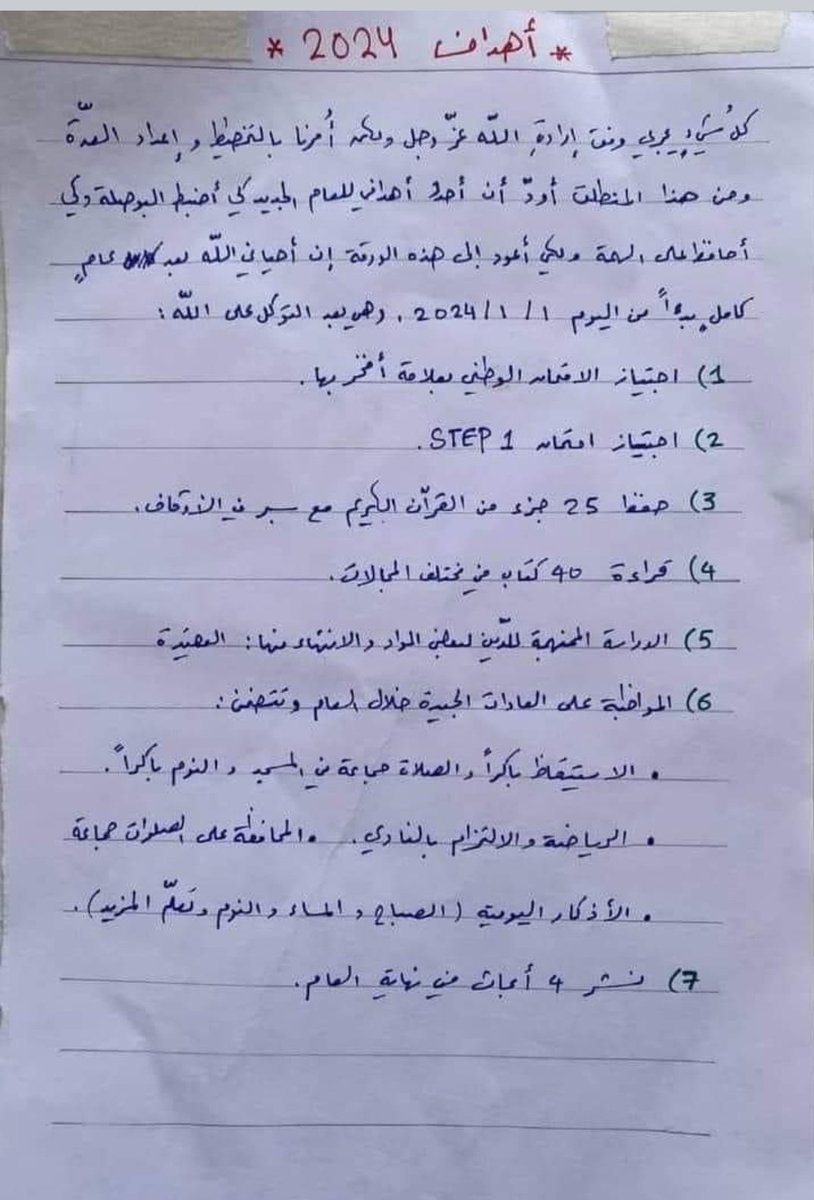 * أهداف 2024 *
كلُ شيءٍ يجري وفق إرادةِ اللّه عزّ وجل ولكنه أُمرنا بالتخطيط و إعداد العدّة
ومن هذا المنطلق أودّ أن أحدد أهدافي للعام الجديد كي أضبط البوصلة وكي
أحافظ على الهمة ولكي أعود إلى هذه الورقة إن أحياني اللّه بعد عامٍ
كاملٍ بدءاً من اليوم 1/1/2024، وهي بعد التوكل على اللّه:
1) اجتياز الامتحان الوطني بعلامة أفخر بها.
2) اجتياز امتحان STEP 1.
3) حفظ 25 جزء من القرآن الكريم مع سبر في الأوقاف.
4) قراءة 40 كتاب في مختلف المجالات.
5) الدراسة الممنهجة للدّين لبعض المواد والانتهاء منها: العقيدة
6) المواظبة على العادات الجيدة خلال العام وتتضمن:
• الاستيقاظ باكراً والصلاة جماعة في المسجد والنوم باكراً.
• الرياضة والالتزام بالنادي. • المحافظة على الصلوات جماعة
• الأذكار اليومية (الصباح و المساء والنوم وتعلّم المزيد).
7) نشر 4 أبحاث في نهاية العام.